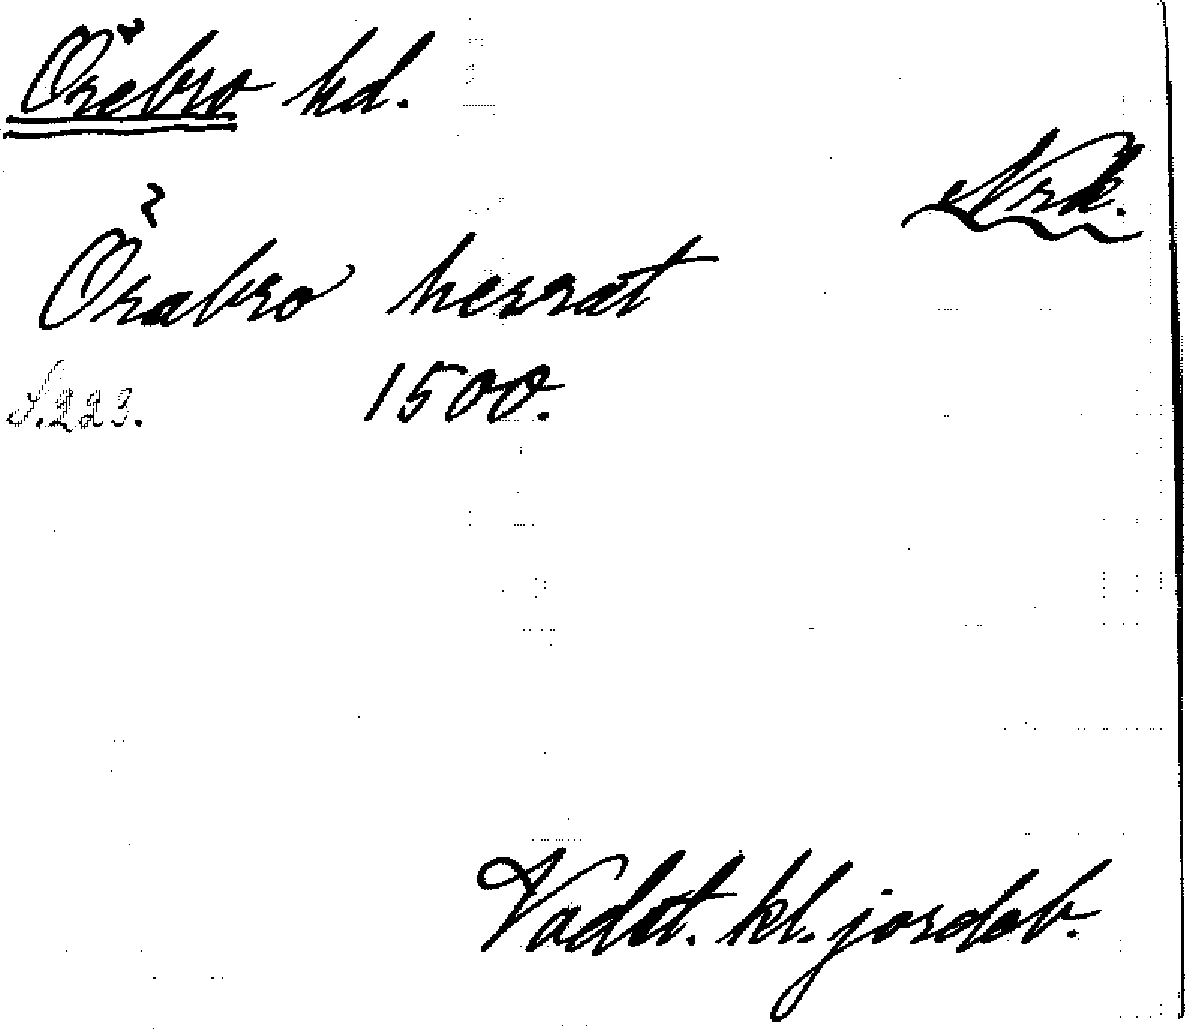 Örebro hd.
Nrk.
Örabro herrat
S. 223. 1500.
Vadst. kl. jordeb.